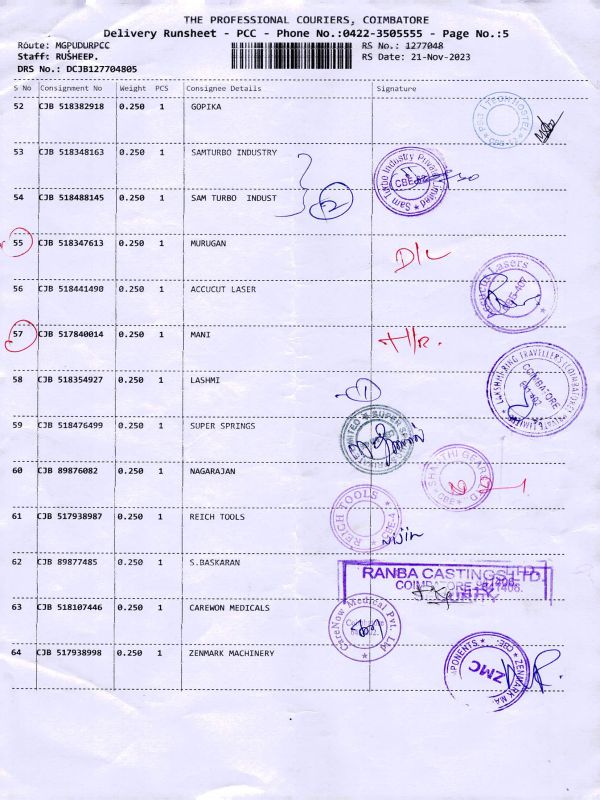 THE PROFESSIONAL COURIERS, COIMBATORE
Delivery Runsheet - PCC - Phone No.:0422-3505555 - Page No.:5
Route: MGPUDURPCC
RS No.: 1277048
Staff: RUSHEEP.
RS Date: 21-Nov-2023
DRS No.: DCJB127704805
S No Consignment No Weight PCS Consignee Details Signature
52 CJB 518382918 0.250 1 GOPIKA
53 CJB 518348163 0.250 1 SAMTURBO INDUSTRY
Sam Turbo Industry Private Limited
CBE-62
54 CJB 518488145 0.250 1 SAM TURBO INDUST
2
55 CJB 518347613 0.250 1 MURUGAN D/L
56 CJB 518441490 0.250 1 ACCUCUT LASER
Accucut Lasers
57 CJB 517840014 0.250 1 MANI
58 CJB 518354927 0.250 1 LASHMI
COIMBATORE
1
59 CJB 518476499 0.250 1 SUPER SPRINGS
60 CJB 89876082 0.250 1 NAGARAJAN
SHANTHI GEARS
CBE
61 CJB 517938987 0.250 1 REICH TOOLS
REICH TOOLS
62 CJB 89877485 0.250 1 S.BASKARAN
RANBA CASTINGS LTD.
63 CJB 518107446 0.250 1 CAREWON MEDICALS
CareNow Medical Pvt Ltd
64 CJB 517938998 0.250 1 ZENMARK MACHINERY
ZMC